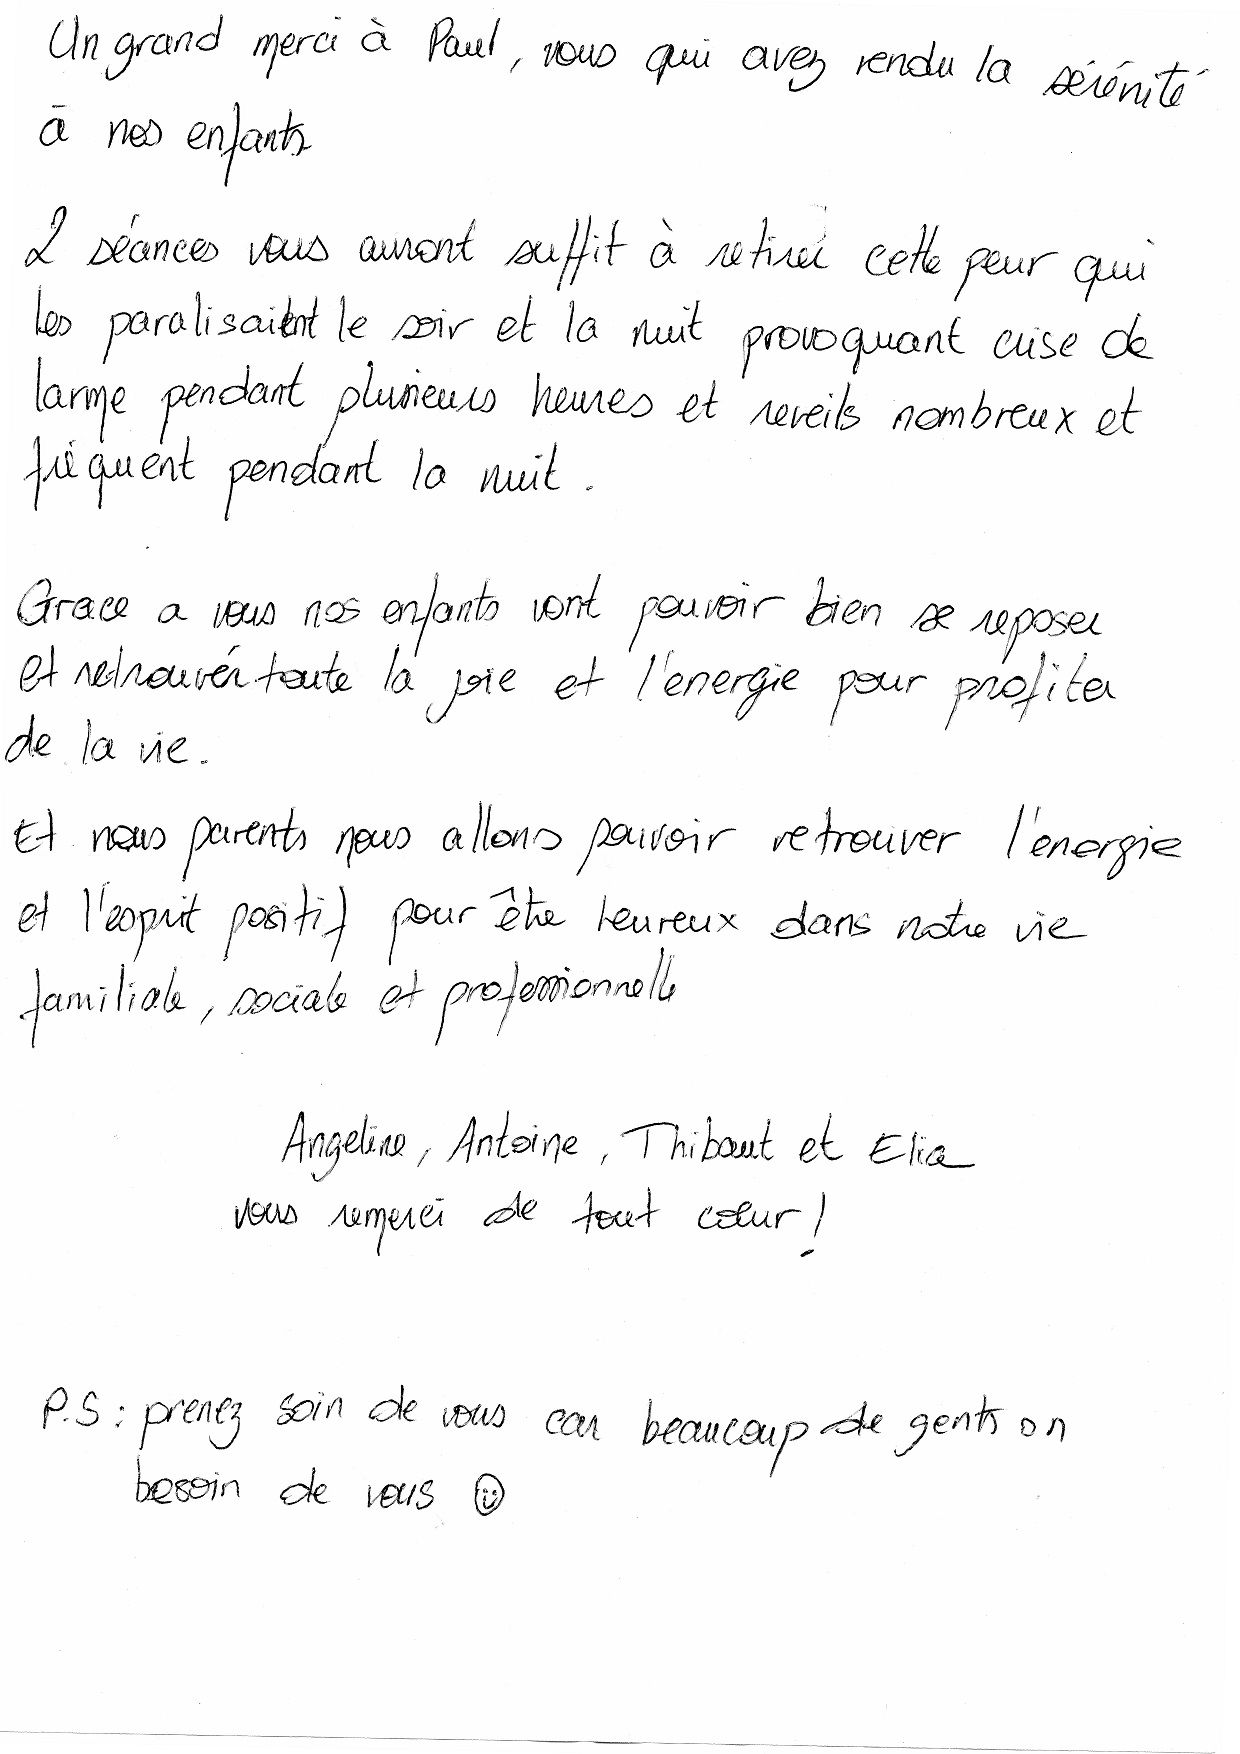 Un grand merci à Paul, vous qui avez rendu la sérénité
à nos enfants
2 séances vous auront suffit à retirer cette peur qui
les paralisaient le soir et la nuit provoquant crise de
larme pendant plusieurs heures et reveils nombreux et
fréquent pendant la nuit.
Grace a vous nos enfants vont pouvoir bien se reposer
et retrouvér toute la joie et l'energie pour profiter
de la vie.
Et nous parents nous allons pouvoir retrouver l'energie
et l'esprit positif pour être heureux dans notre vie
familiale, sociale et professionnelle
Angeline, Antoine, Thibaut et Elia
vous remerci de tout cœur !
P.S : prenez soin de vous car beaucoup de gents on
besoin de vous ☺